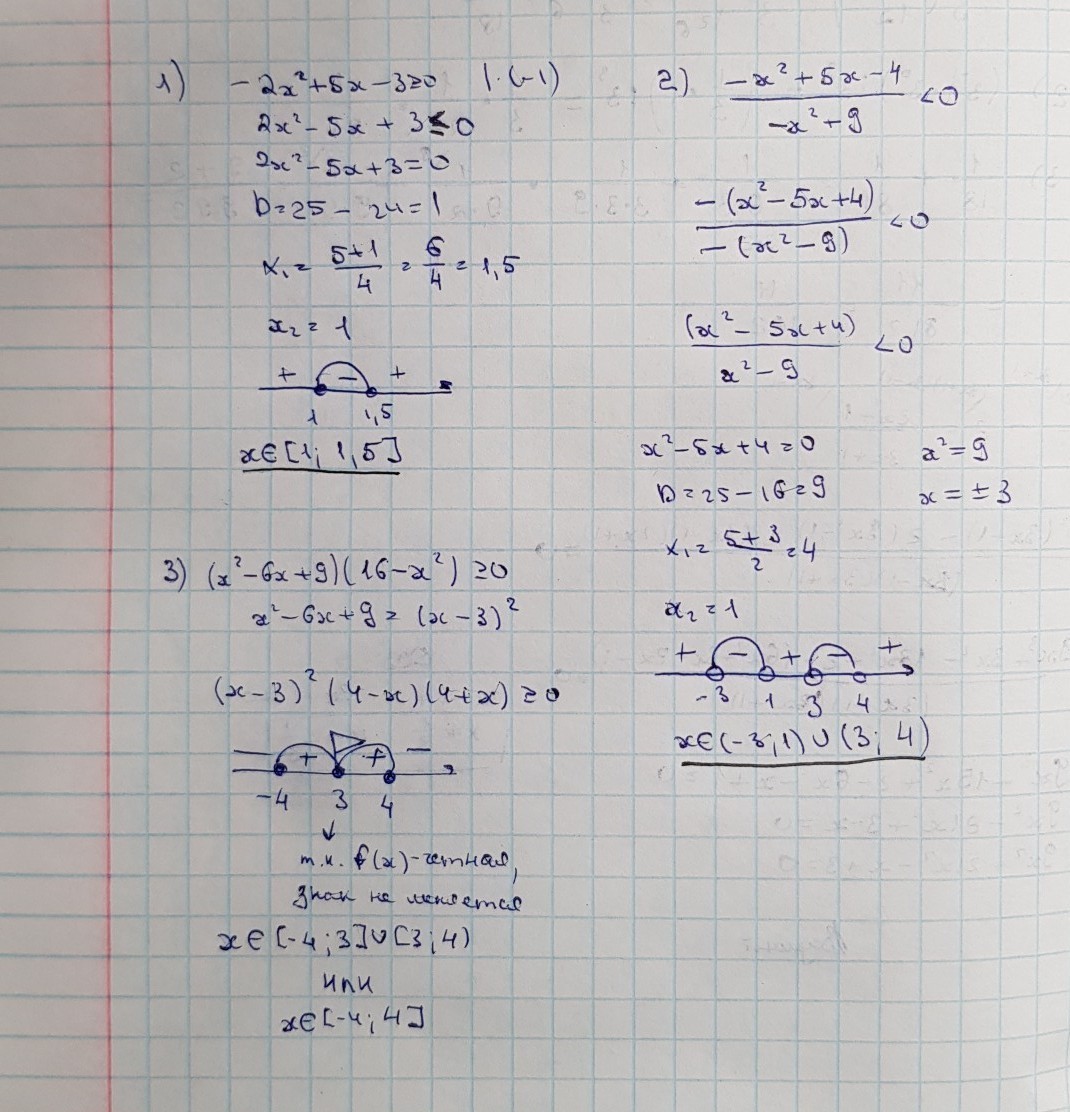 1) -2x²+5x-3≥0 |·(-1)
2x²-5x+3≤0
2x²-5x+3=0
D=25-24=1
x₁= (5+1)/4 = 6/4 = 1,5
x₂=1
+ - +
1 1,5
x∈[1; 1,5]
2) (-x²+5x-4)/(-x²+9) <0
(-(x²-5x+4))/(-(x²-9)) <0
((x²-5x+4))/(x²-9) <0
x²-5x+4=0 x²=9
D=25-16=9 x=±3
x₁= (5+3)/2 =4
x₂=1
+ - + - +
-3 1 3 4
x∈(-3;1)∪(3; 4)
3) (x²-6x+9)(16-x²)≥0
x²-6x+9=(x-3)²
(x-3)²(4-x)(4+x)≥0
- + + -
-4 3 4
↓
т.к. f(x)-четная,
знак не меняется
x∈[-4;3]∪[3;4)
или
x∈[-4;4]